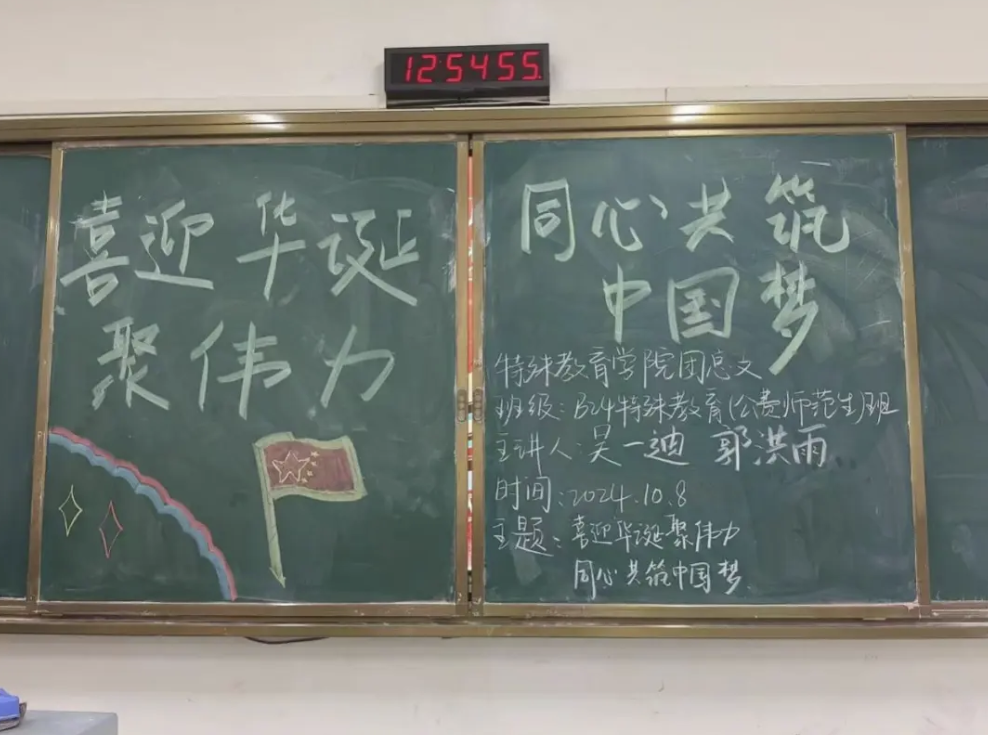 12:54:55
喜迎华诞
聚伟力
同心共筑
中国梦
特殊教育学院团总支
班级：B24特殊教育(公费师范生)班
主讲人：吴一迪 郭洪雨
时间：2024.10.8
主题：喜迎华诞聚伟力
同心共筑中国梦